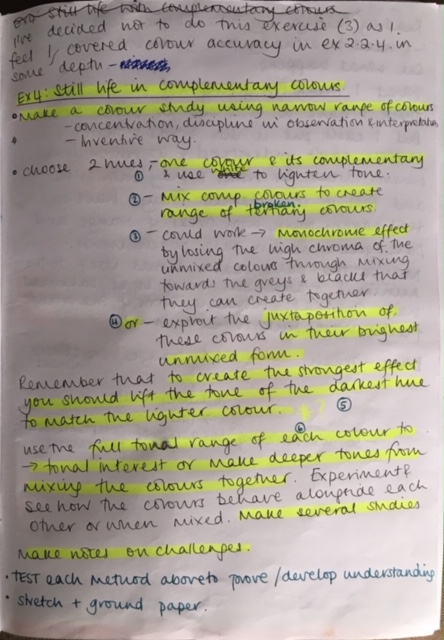 Still life with complementary colours
I've decided not to do this exercise (3) as I
feel I covered colour accuracy in ex 2.2.4. in
some depth -
Ex4: Still life in complementary colours
• Make a colour study using narrow range of colours
- concentration, discipline in observation & interpretation
- Inventive way.
• choose 2 hues; - one colour & its complementary
① & use white to lighten tone.
② - mix comp colours to create
range of broken tertiary colours.
③ - could work → monochrome effect
by losing the high chroma of the
unmixed colours through mixing
towards the greys & blacks that
they can create together
④ or - exploit the juxtaposition of
these colours in their brightest
unmixed form.
Remember that to create the strongest effect
you should lift the tone of the darkest hue
to match the lighter colour. ⑤
use the full tonal range of each colour to ⑥
→ tonal interest or make deeper tones from
mixing the colours together. Experiment &
see how the colours behave alongside each
other or when mixed. Make several studies
Make notes on challenges.
• TEST each method above to prove/develop understanding
• stretch + ground paper.